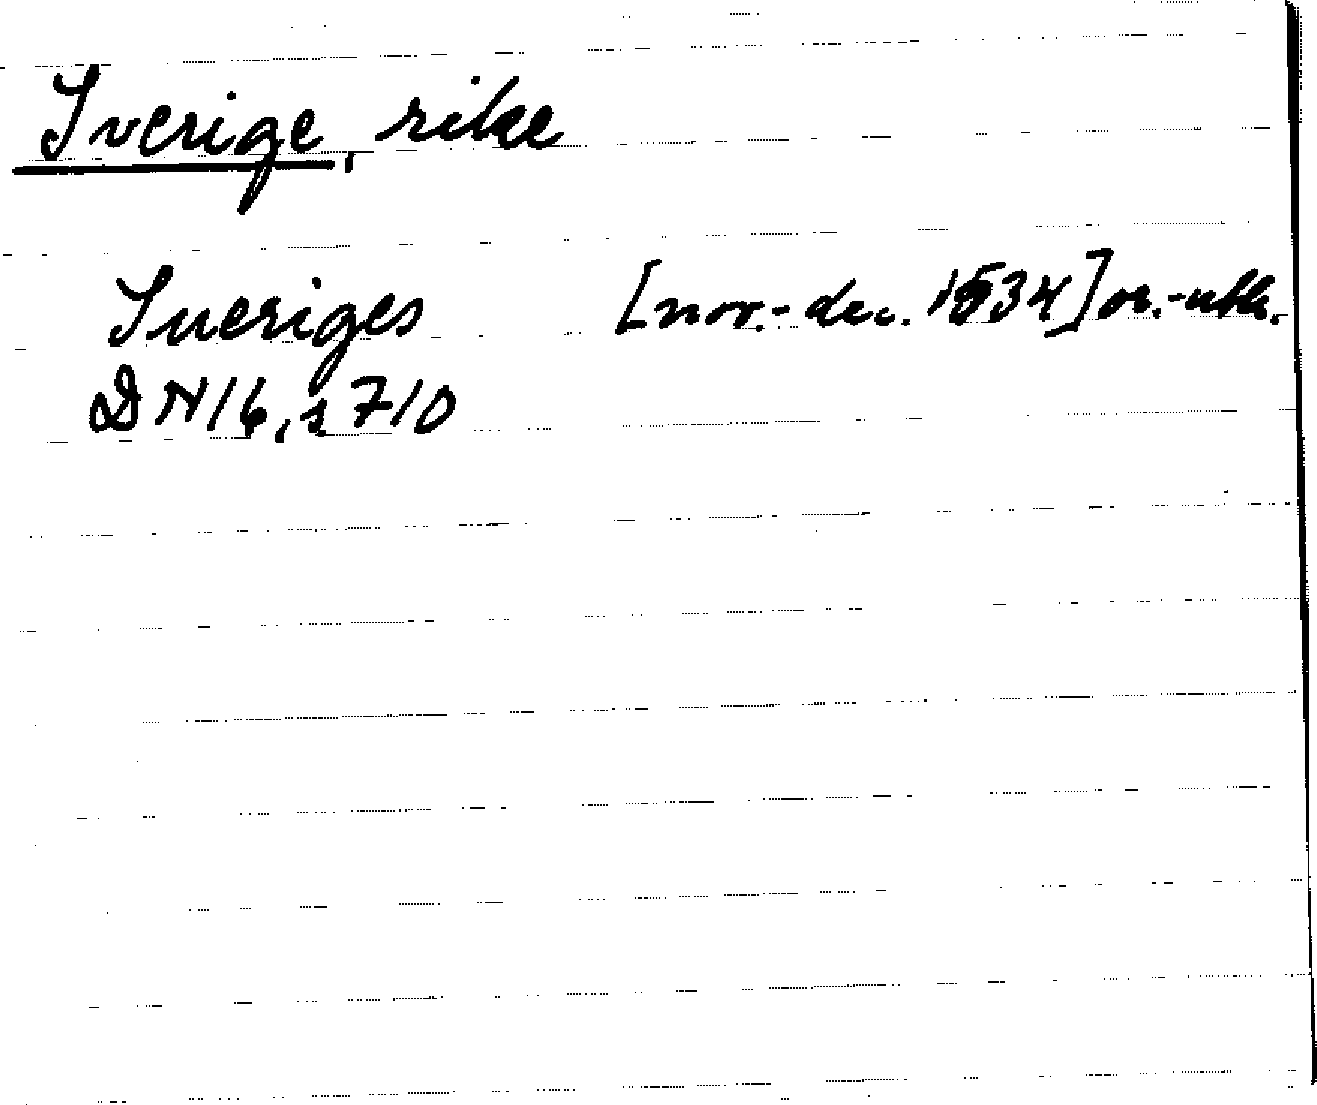 Sverige, rike
Sueriges [nov.-dec. 1534] or.-utk.
DN 16, s 710